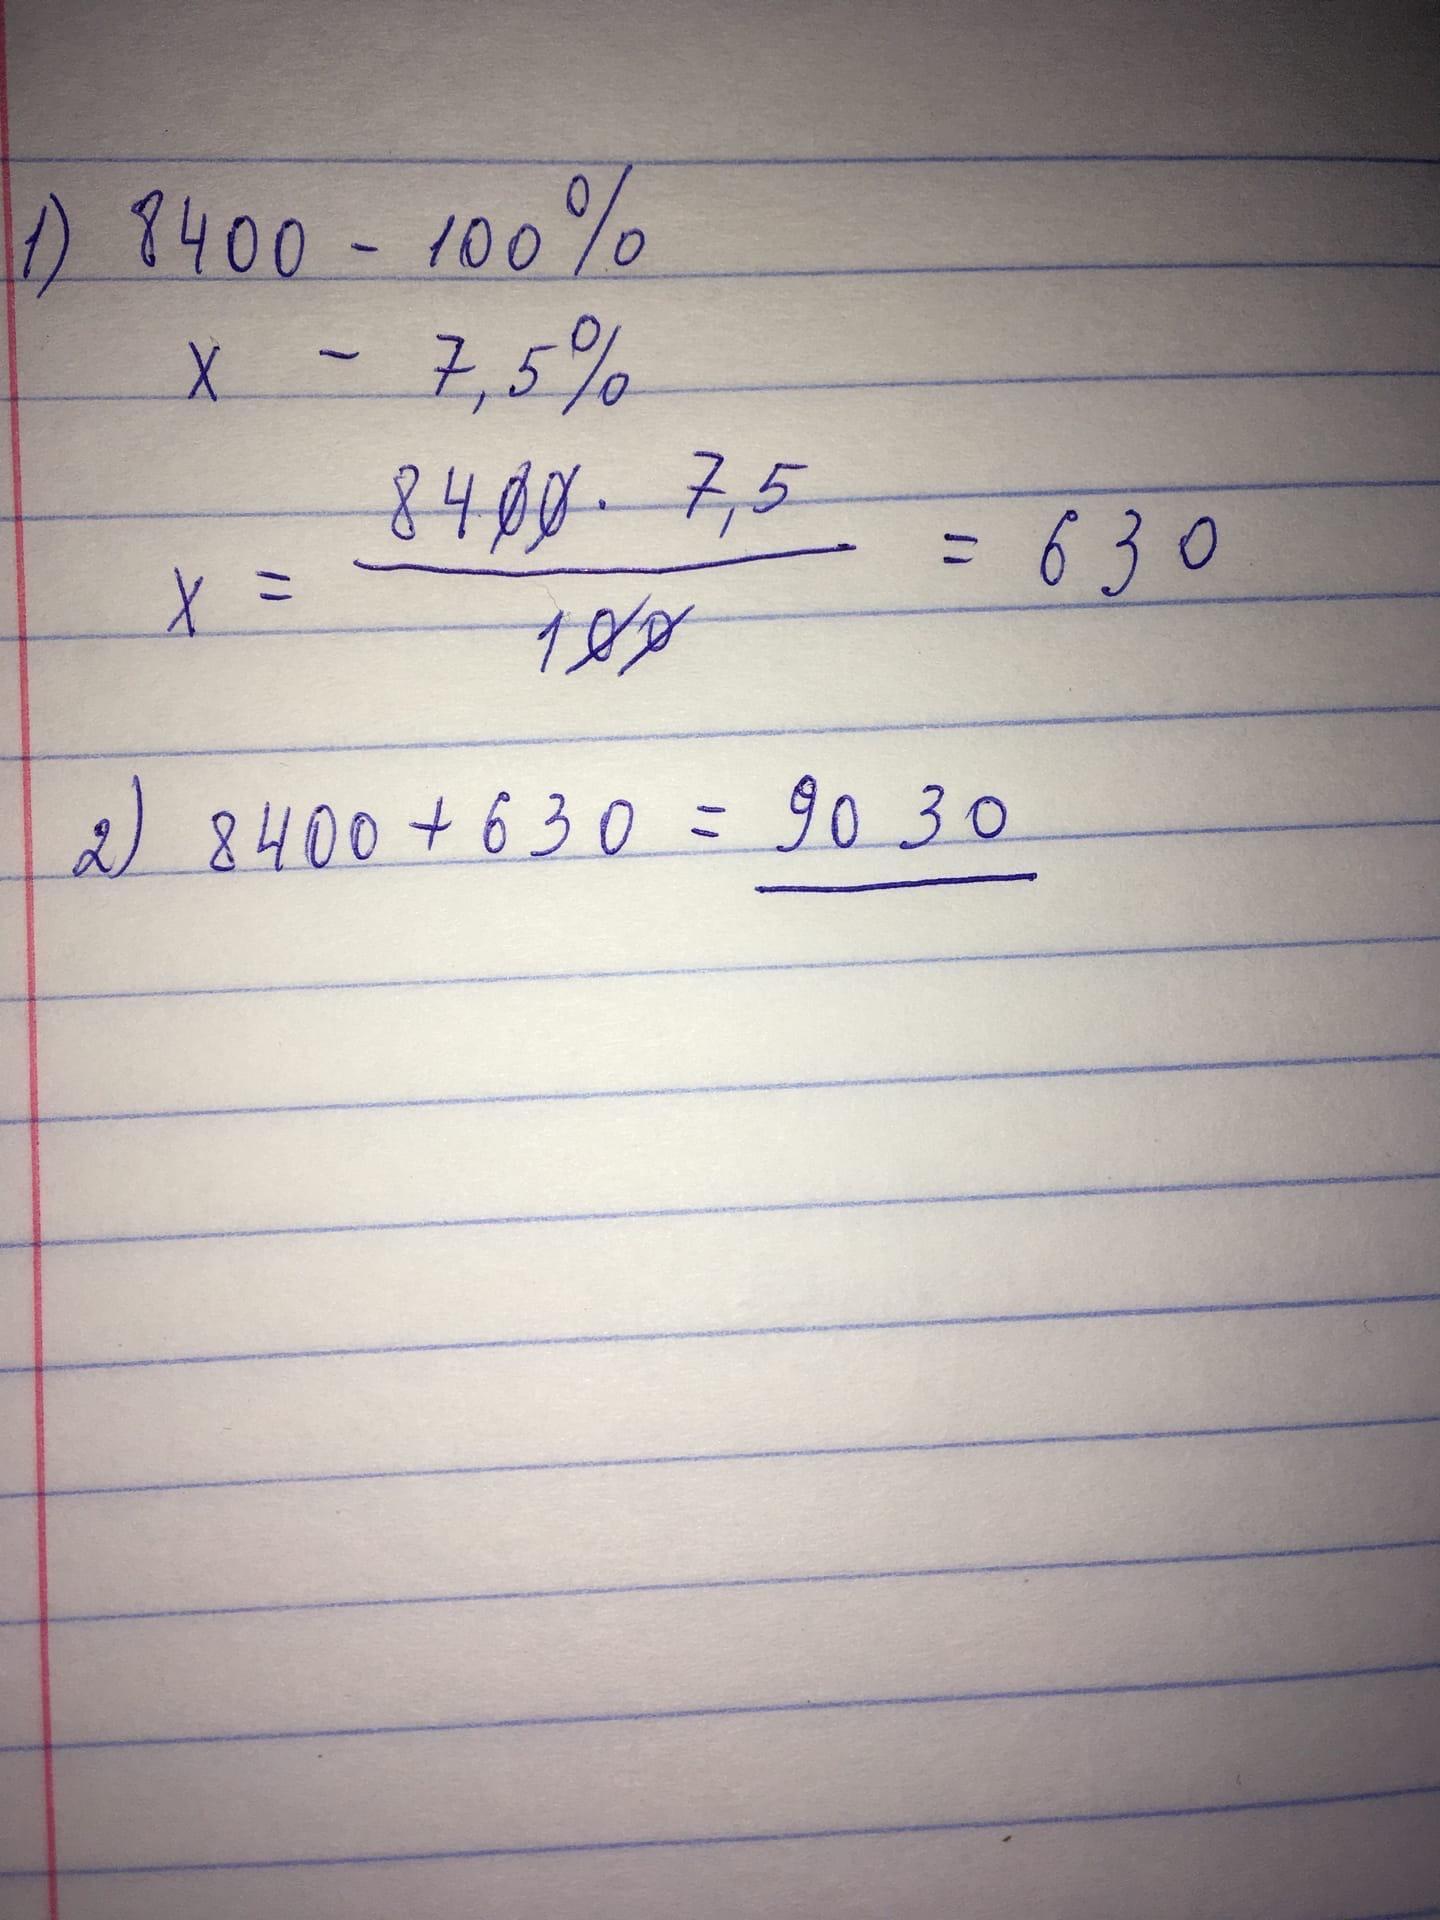 1) 8400 - 100%
x - 7,5%
x = 8400 · 7,5 / 100 = 630
2) 8400 + 630 = 9030